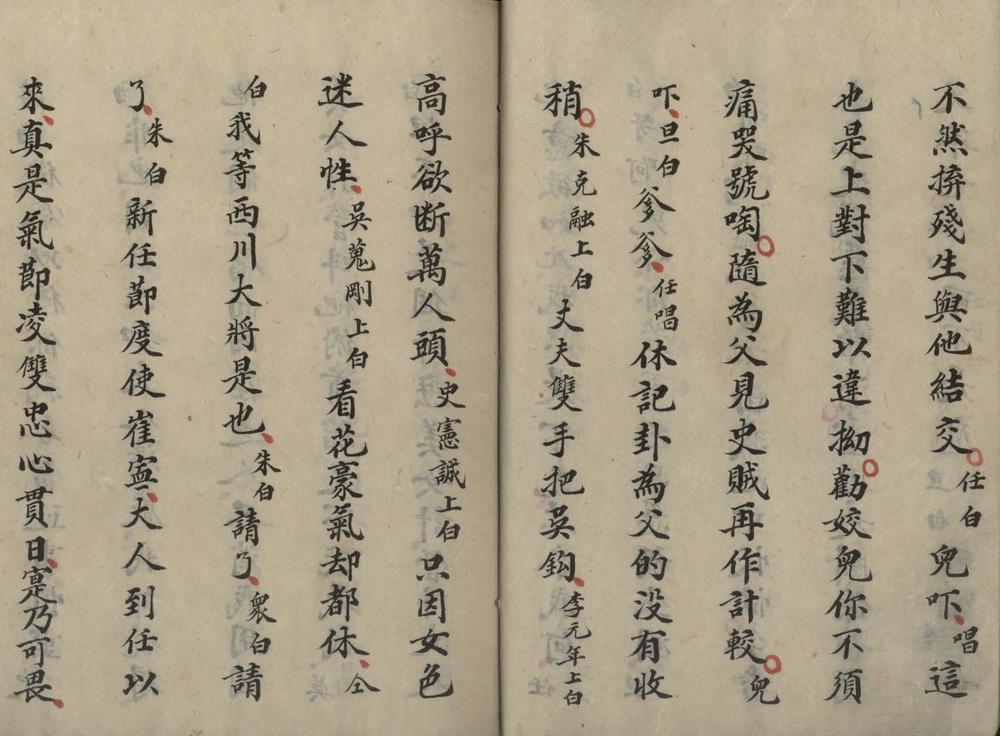 不然拚殘生與他結交任白兒吓唱這
也是上對下難以違拗勸姣兒你不須
痛哭號啕隨為父見史賊再作計較兒
吓旦白爹爹任唱休記卦為父的没有收
稍朱克融上白丈夫雙手把吳鈎李元年上白
高呼欲断萬人頭史憲誠上白只因女色
迷人性吳蒐剛上白看花豪氣却都休仝
白我等西川大將是也朱白請了衆白請
了朱白新任節度使崔寍大人到任以
來真是氣節凌雙忠心貫日寔乃可畏